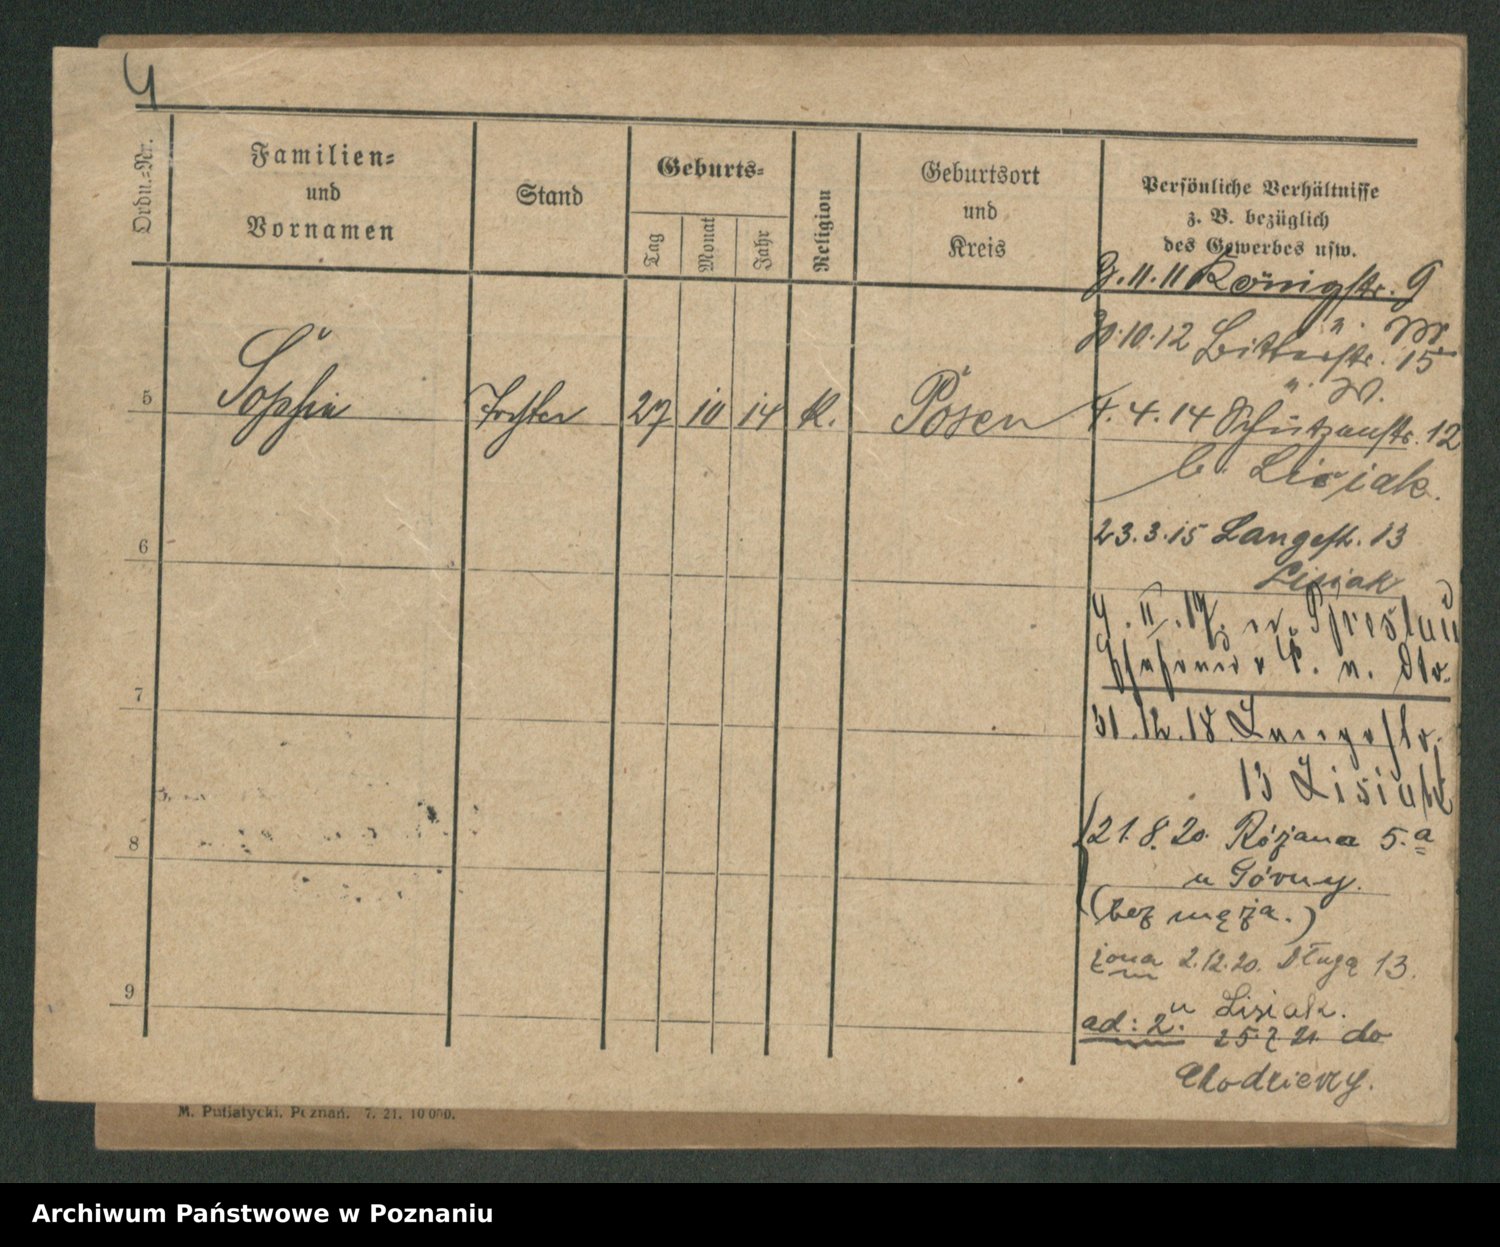 Ordn.-Nr.
Familien=
und
Vornamen
Stand
Geburts=
Tag
Monat
Jahr
Religion
Geburtsort
und
Kreis
Persönliche Verhältnisse
z. B. bezüglich
des Gewerbes usw.
11.11 Königstr. 9
30.10.12 Bitterstr. 15
5 Sophie Tochter 27 10 14 K. Posen
4.4.14 Schützenstr. 12
b. Lisiak.
23.3.15 Langestr. 13
Lisiak
6
7
31.12.18 Langestr.
13 Lisiak
8
21.8.20. Różana 5.a
u Górny.
(bez męża.)
żona 2.12.20. Długa 13.
u Lisiak.
9
ad: 2. 25.7 21. do
Chodzieży.
M. Putiatycki, Poznań. 7. 21. 10000.
Archiwum Państwowe w Poznaniu